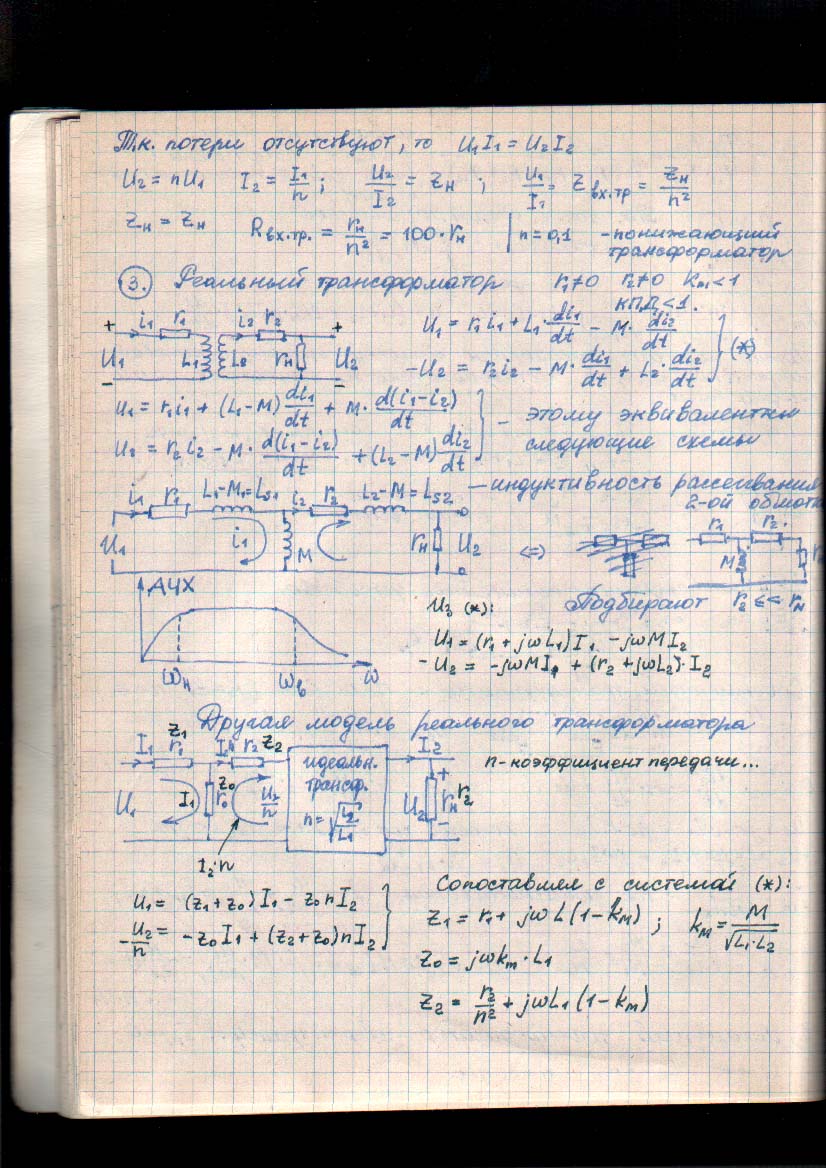 Т.к. потери отсутствуют, то U₁I₁ = U₂I₂
U₂ = nU₁ I₂ = I₁/n ; U₂/I₂ = Zн ; U₁/I₁ = Z вх.тр = Zн/n²
Zн = Zн Rвх.тр. = rн/n² = 100·rн | n = 0,1 - понижающий
трансформатор
3. Реальный трансформатор r₁≠0 r₂≠0 Kм<1
КПД<1.
+ i₁ r₁ i₂ r₂ +
U₁ L₁ L₂ rн U₂
- -
U₁ = r₁i₁ + L₁·di₁/dt - M·di₂/dt
-U₂ = r₂i₂ - M·di₁/dt + L₂·di₂/dt } (*)
U₁ = r₁i₁ + (L₁-M)di₁/dt + M·d(i₁-i₂)/dt
U₂ = r₂i₂ - M·d(i₁-i₂)/dt + (L₂-M)di₂/dt } - этому эквивалентны
следующие схемы
i₁ r₁ L₁-M₁=Ls₁ i₂ r₂ L₂-M=Ls₂ - индуктивность рассеивания
2-ой обмотки
U₁ i₁ M rн U₂ <=> r₁ r₂ M
АЧХ
ωн ωв ω
Подбирают r₂ << rн
Из (*):
U₁ = (r₁ + jωL₁)I₁ - jωMI₂
- U₂ = -jωMI₁ + (r₂ + jωL₂)·I₂
Другая модель реального трансформатора
I₁ Z₁ r₁ r₂ Z₂ I₂
U₁ I₁ Z₀ r₀ U₂/n идеальн.
трансф.
n = √L₂/L₁
+ U₂ rн r₂ -
I₂·n
n - коэффициент передачи...
U₁ = (Z₁+Z₀)I₁ - Z₀nI₂
-U₂/n = -Z₀I₁ + (Z₂+Z₀)nI₂ }
Сопоставляем с системой (*):
Z₁ = r₁ + jωL(1-kм) ; kм = M/√L₁·L₂
Z₀ = jωkм·L₁
Z₂ = r₂/n² + jωL₁(1-kм)